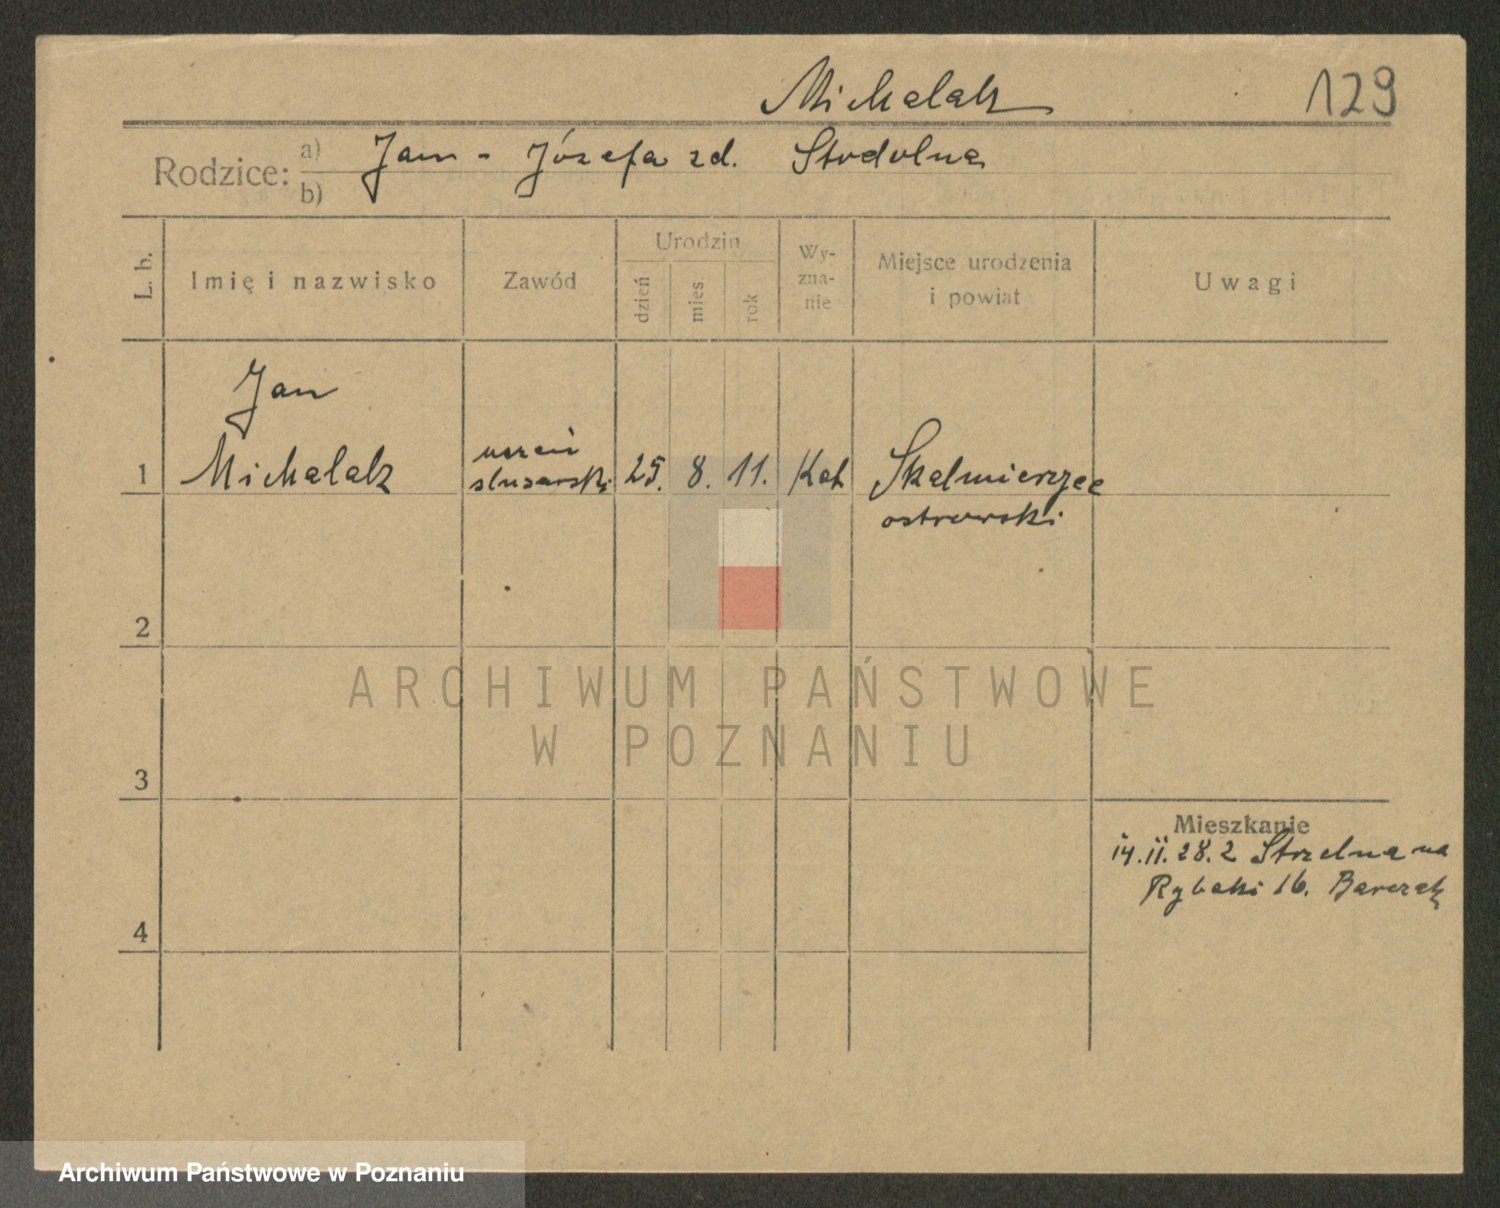 Michalak
129
Rodzice:
a) Jan - Józefa zd. Stodolna
b)
L. b.
Imię i nazwisko
Zawód
Urodzin
dzień
mies
rok
Wy-
zna-
nie
Miejsce urodzenia
i powiat
Uwagi
Jan
1 Michalak
uczeń
slusarski
25. 8. 11. Kat
Skalmierzyce
ostrowski
2
ARCHIWUM PAŃSTWOWE
W POZNANIU
3
Mieszkanie
14.11.28. z Strzelna na
Rybaki 16. Barczak
4
Archiwum Państwowe w Poznaniu